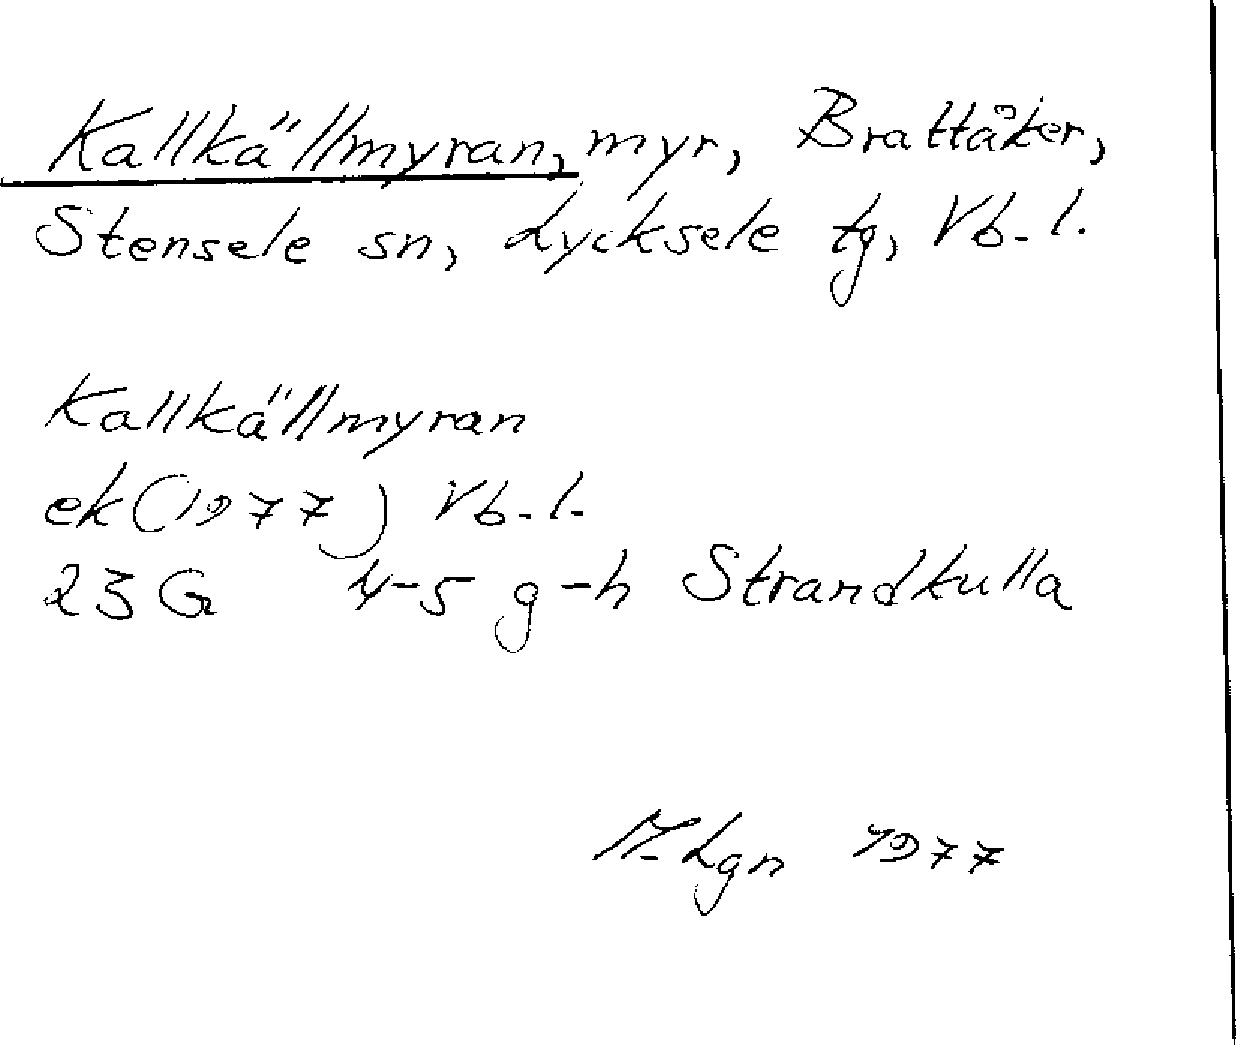 Kallkällmyran, myr, Brattåker,
Stensele sn, Lycksele tg, Vb. l.
Kallkällmyran
ek (1977) Vb. l.
23 G 4-5 g-h Strandkulla
Lgn 1977